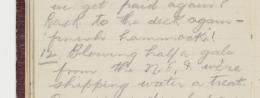 we get paid again?
Back to the deck again -
finish hammock!
12. Blowing half a gale
from the N.E. & were
shipping water a treat.